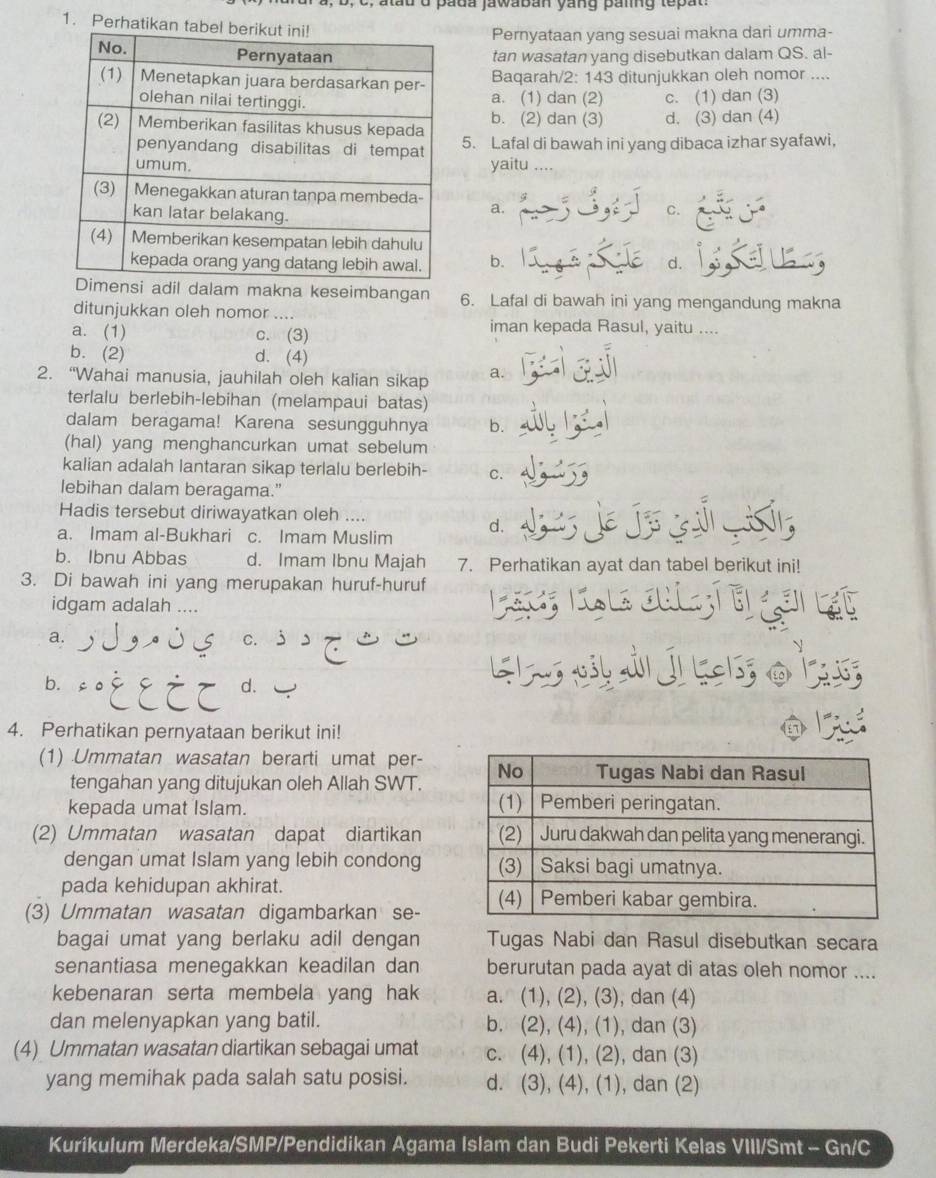 pada jawaban yang paling tepat!
1. Perhatikan tabel berikut ini!
No. Pernyataan
(1) Menetapkan juara berdasarkan per-
olehan nilai tertinggi.
(2) Memberikan fasilitas khusus kepada
penyandang disabilitas di tempat
umum.
(3) Menegakkan aturan tanpa membeda-
kan latar belakang.
(4) Memberikan kesempatan lebih dahulu
kepada orang yang datang lebih awal.
Dimensi adil dalam makna keseimbangan
ditunjukkan oleh nomor ....
a. (1) c. (3)
b. (2) d. (4)
2. “Wahai manusia, jauhilah oleh kalian sikap
terlalu berlebih-lebihan (melampaui batas)
dalam beragama! Karena sesungguhnya
(hal) yang menghancurkan umat sebelum
kalian adalah lantaran sikap terlalu berlebih-
lebihan dalam beragama.”
Hadis tersebut diriwayatkan oleh ....
a. Imam al-Bukhari c. Imam Muslim
b. Ibnu Abbas d. Imam Ibnu Majah
3. Di bawah ini yang merupakan huruf-huruf
idgam adalah ....
a. ي ن م و ل ر c. ت ث ج د ذ
b. ح خ ع غ ه ء d. ب
4. Perhatikan pernyataan berikut ini!
(1) Ummatan wasatan berarti umat per-
tengahan yang ditujukan oleh Allah SWT.
kepada umat Islam.
(2) Ummatan wasatan dapat diartikan
dengan umat Islam yang lebih condong
pada kehidupan akhirat.
(3) Ummatan wasatan digambarkan se-
bagai umat yang berlaku adil dengan
senantiasa menegakkan keadilan dan
kebenaran serta membela yang hak
dan melenyapkan yang batil.
(4) Ummatan wasatan diartikan sebagai umat
yang memihak pada salah satu posisi.
Pernyataan yang sesuai makna dari umma-
tan wasatan yang disebutkan dalam QS. al-
Baqarah/2: 143 ditunjukkan oleh nomor ....
a. (1) dan (2) c. (1) dan (3)
b. (2) dan (3) d. (3) dan (4)
5. Lafal di bawah ini yang dibaca izhar syafawi,
yaitu ....
a. لَرَءُوْفٌ رَّحِيْمٌ c. مَنْ يَّتَّبِعُ
b. عَلَيْكُمْ شَهِيْدًا d. وَسَطًا لِّتَكُوْنُوْا
6. Lafal di bawah ini yang mengandung makna
iman kepada Rasul, yaitu ....
a. الَّذِيْنَ اٰمَنُوْٓا
b. اٰمِنُوْا بِاللّٰهِ
c. وَرَسُوْلِهٖ
d. وَالْكِتٰبِ الَّذِيْ نَزَّلَ عَلٰى رَسُوْلِهٖ
7. Perhatikan ayat dan tabel berikut ini!
يٰٓاَيُّهَا النَّبِيُّ اِنَّآ اَرْسَلْنٰكَ شَاهِدًا وَّمُبَشِّرًا
وَّنَذِيْرًاۙ ﴿٤٥﴾ وَّدَاعِيًا اِلَى اللّٰهِ بِاِذْنِهٖ وَسِرَاجًا
مُّنِيْرًا ﴿٤٦﴾
No Tugas Nabi dan Rasul
(1) Pemberi peringatan.
(2) Juru dakwah dan pelita yang menerangi.
(3) Saksi bagi umatnya.
(4) Pemberi kabar gembira.
Tugas Nabi dan Rasul disebutkan secara
berurutan pada ayat di atas oleh nomor ....
a. (1), (2), (3), dan (4)
b. (2), (4), (1), dan (3)
c. (4), (1), (2), dan (3)
d. (3), (4), (1), dan (2)
Kurikulum Merdeka/SMP/Pendidikan Agama Islam dan Budi Pekerti Kelas VIII/Smt – Gn/C